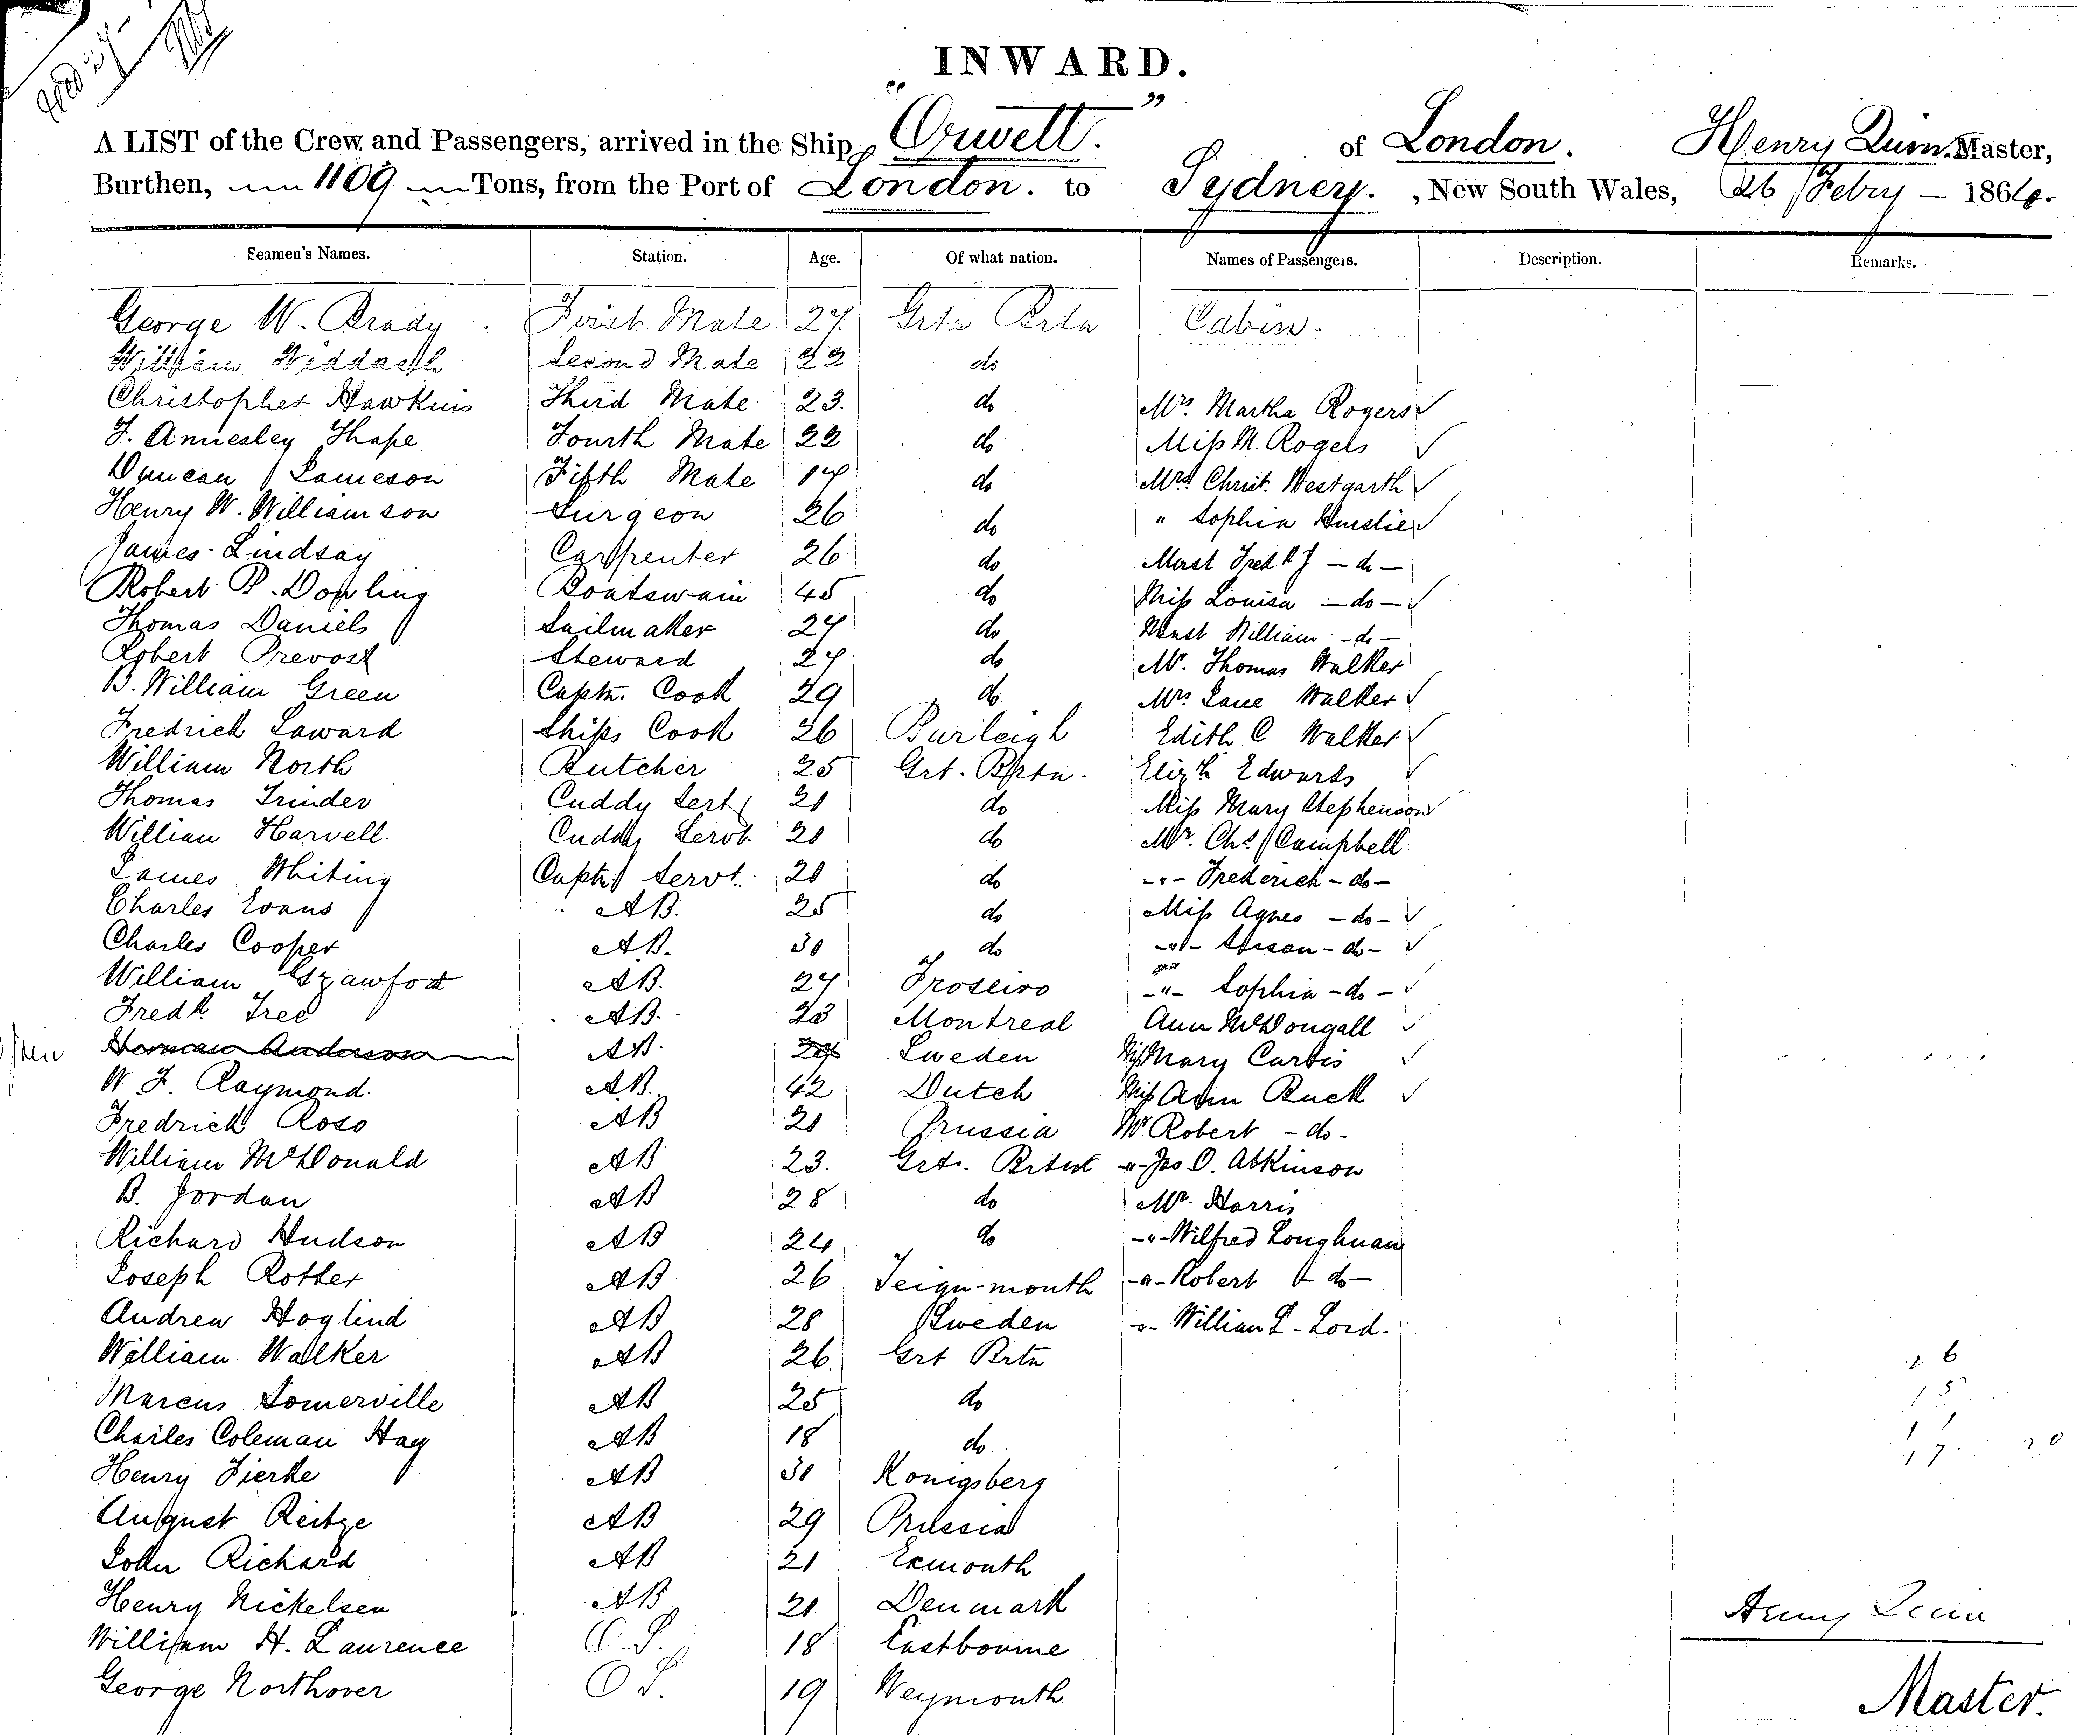 INWARD.
A LIST of the Crew and Passengers, arrived in the Ship "Orwell." of London. Henry Quin. Master,
Burthen, 1109 Tons, from the Port of London. to Sydney. , New South Wales, 26 Feby - 1864.
Seamen's Names. Station. Age. Of what nation. Names of Passengers. Description. Remarks.
George W. Brady First Mate 27 Grtn Brtn Cabin.
William Second Mate 22 do
Christopher Hawkins Third Mate 23. do Mrs. Martha Rogers ✓
F. Annesley Thape Fourth Mate 22 do Miss M. Rogers ✓
Duncan Jameson Fifth Mate 17 do Mrs Christ. Westgarth ✓
Henry W. Williamson Surgeon 26 do " Sophia ✓
James Lindsay Carpenter 26 do Mast Fredk J - do -
Robert P. Dowling Boatswain 45 do Miss Louisa - do - ✓
Thomas Daniels Sailmaker 27 do Mast William - do -
Robert Prevost Steward 27 do Mr. Thomas Walker
B. William Green Captn. Cook 29 do Mrs Jane Walker ✓
Fredrick Saward Ships Cook 26 Burleigh Edith C Walker ✓
William North Butcher 25 Grt. Brtn. Elizth Edwards ✓
Thomas Trinder Cuddy Sert 21 do Miss Mary Stephenson ✓
William Harvell Cuddy Servt. 20 do Mr. Chs Campbell
James Whiting Captn Servt. 20 do -"- Frederick - do -
Charles Evans AB. 25 do Miss Agnes - do - ✓
Charles Cooper AB. 30 do -"- Susan - do - ✓
William AB. 27 -"- Sophia - do - ✓
Fredk. Tree AB. 23 Montreal Ann McDougall ✓
Herman Anderson AB. Sweden Miss Mary Curtis ✓
W F. Raymond. AB. 42 Dutch Miss Ann Buck ✓
Fredrick Ross AB 21 Prussia Mr Robert - do -
William McDonald AB 23. Grt. -"- Jas O. Atkinson
B. Jordan AB 28 do Mr. Harris
Richard Hudson AB 24 do -"- Wilfred Loughnan
Joseph Rotter AB 26 Teign-mouth -"- Robert - do -
Andrew Hoglind AB 28 Sweden -"- William L. Lord.
William Walker AB 26 Grt Brtn
Marcus Somerville AB 25 do
Charles Coleman Hay AB 18 do
Henry Fierke AB 30 Konigsberg
August Reitze AB 29 Prussia
John Richard AB 21 Exmouth
Henry Nickelsen AB 21 Denmark
William H. Laurence O.S. 18 Eastbourne
George Northover O S. 19 Weymouth
Henry Quin
Master.